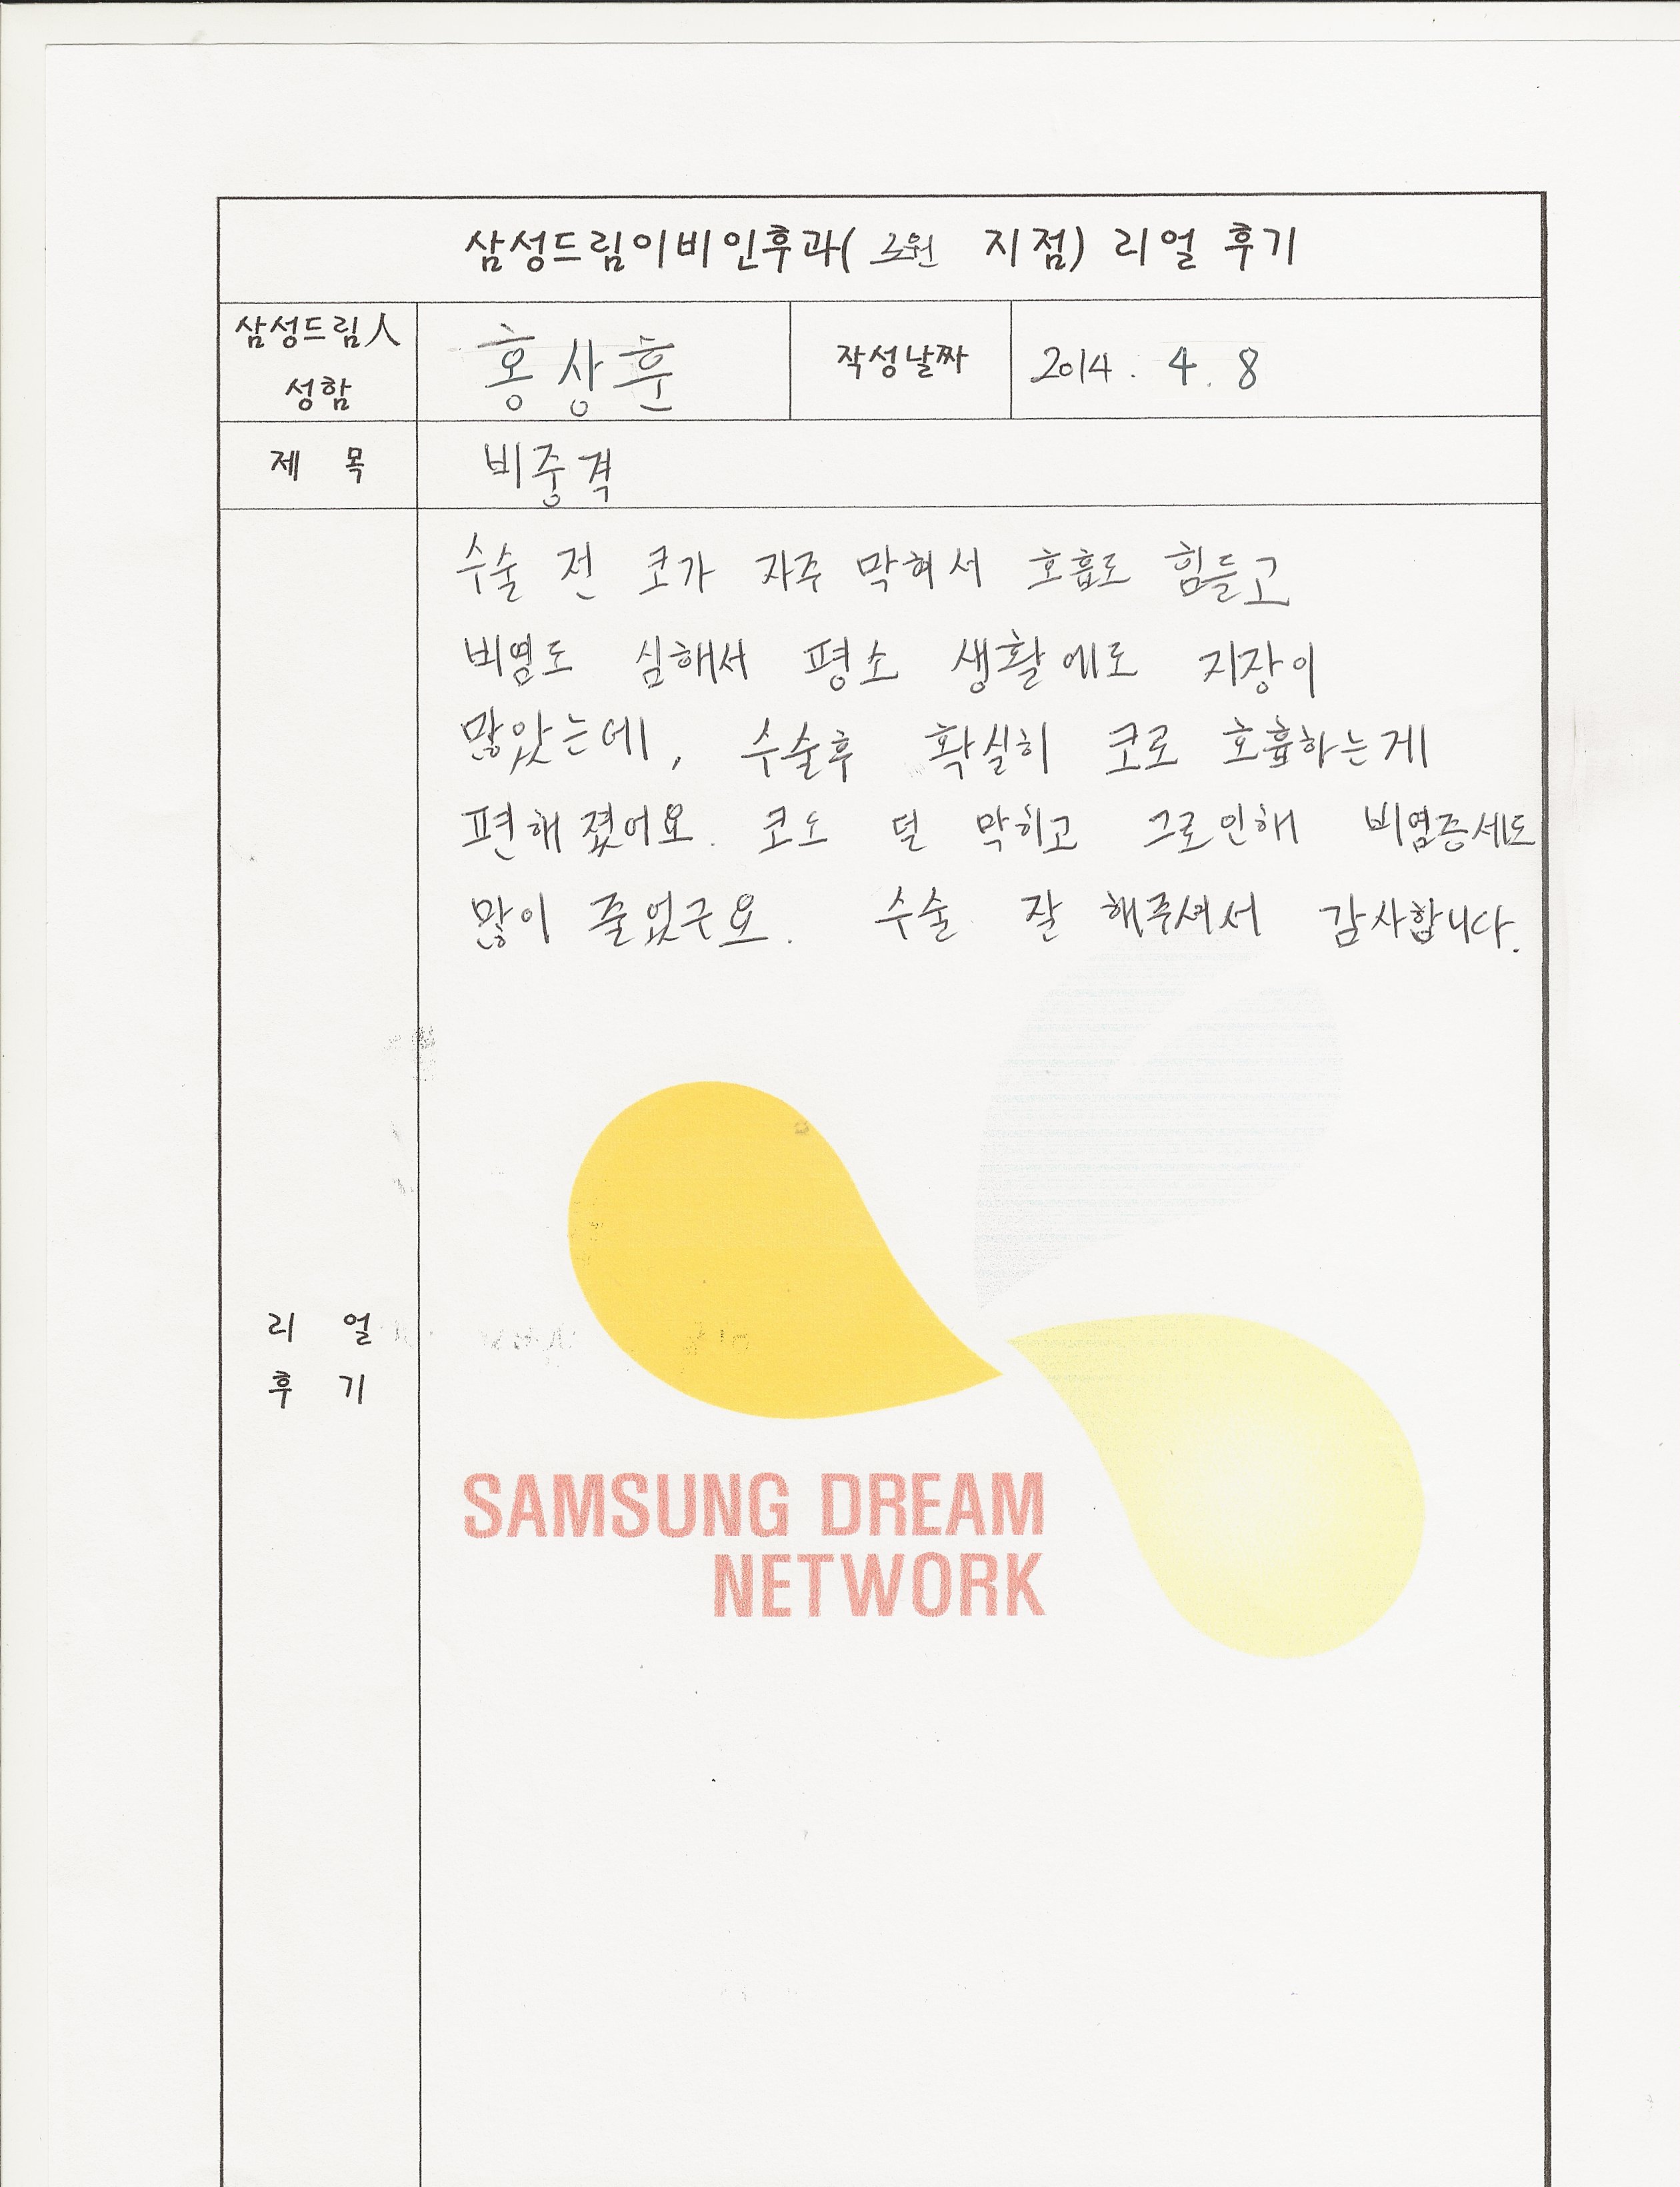 삼성드림이비인후과( 노원 지점) 리얼 후기
삼성드림人 성함 홍상훈 작성날짜 2014. 4. 8
제 목 비중격
수술 전 코가 자주 막혀서 호흡도 힘들고
비염도 심해서 평소 생활에도 지장이
많았는데, 수술후 확실히 코로 호흡하는게
편해졌어요. 코도 덜 막히고 그로인해 비염증세도
많이 줄었구요. 수술 잘 해주셔서 감사합니다.
리 얼
후 기
SAMSUNG DREAM
NETWORK